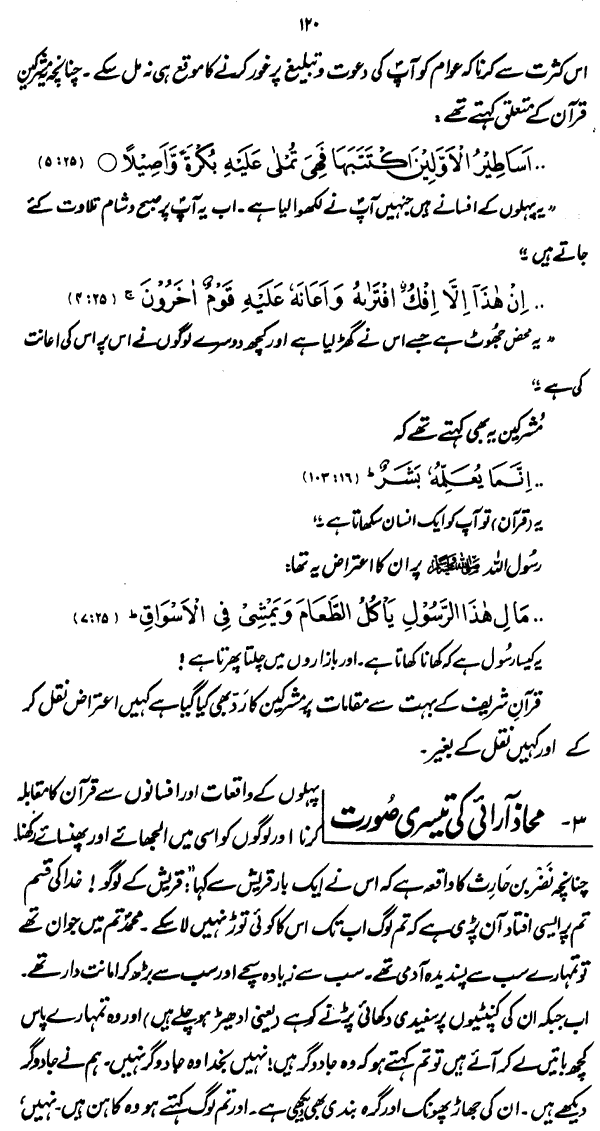 ۱۲۰
اس کثرت سے کرنا کہ عوام کو آپؐ کی دعوت و تبلیغ پر غور کرنے کا موقع ہی نہ مل سکے۔ چنانچہ مشرکین
قرآن کے متعلق کہتے تھے:
.. اَسَاطِیْرُ الْاَوَّلِیْنَ اکْتَتَبَہَا فَھِیَ تُمْلٰی عَلَیْہِ بُکْرَۃً وَّاَصِیْلًا ○ (۵:۲۵)
"یہ پہلوں کے افسانے ہیں جنہیں آپؐ نے لکھوا لیا ہے۔ اب یہ آپؐ پر صبح و شام تلاوت کئے
جاتے ہیں۔"
.. اِنْ ھٰذَآ اِلَّا اِفْکُ ۨافْتَرٰىہُ وَاَعَانَہٗ عَلَیْہِ قَوْمٌ اٰخَرُوْنَ ۚ (۴:۲۵)
"یہ محض جھوٹ ہے جسے اس نے گھڑ لیا ہے اور کچھ دوسرے لوگوں نے اس پر اس کی اعانت
کی ہے۔"
مُشرکین یہ بھی کہتے تھے کہ
.. اِنَّمَا یُعَلِّمُہٗ بَشَرٌ ؕ (۱۰۳:۱۶)
یہ (قرآن) تو آپ کو ایک انسان سکھاتا ہے۔"
رسول اللہ ﷺ پر ان کا اعتراض یہ تھا:
.. مَالِ ھٰذَا الرَّسُوْلِ یَاْکُلُ الطَّعَامَ وَیَمْشِیْ فِی الْاَسْوَاقِ ؕ (۷:۲۵)
یہ کیسا رسول ہے کہ کھانا کھاتا ہے۔ اور بازاروں میں چلتا پھرتا ہے!
قرآن شریف کے بہت سے مقامات پر مشرکین کا رَد بھی کیا گیا ہے کہیں اعتراض نقل کر
کے اور کہیں نقل کے بغیر۔
۳- محاذ آرائی کی تیسری صُورت پہلوں کے واقعات اور افسانوں سے قرآن کا مقابلہ
کرنا اور لوگوں کو اسی میں الجھائے اور پھنسائے رکھنا
چنانچہ نضر بن حارث کا واقعہ ہے کہ اس نے ایک بار قریش سے کہا: "قریش کے لوگو! خدا کی قسم
تم پر ایسی افتاد آن پڑی ہے کہ تم لوگ اب تک اس کا کوئی توڑ نہیں لا سکے۔ محمدؐ تم میں جوان تھے
تو تمہارے سب سے پسندیدہ آدمی تھے۔ سب سے زیادہ سچے اور سب سے بڑھ کر امانت دار تھے۔
اب جبکہ ان کی کنپٹیوں پر سفیدی دکھائی پڑنے کو ہے (یعنی ادھیڑ ہو چلے ہیں) اور وہ تمہارے پاس
کچھ باتیں لے کر آئے ہیں تو تم کہتے ہو کہ وہ جادوگر ہیں؛ نہیں بخدا وہ جادوگر نہیں۔ ہم نے جادوگر
دیکھے ہیں۔ ان کی جھاڑ پھونک اور گرہ بندی بھی دیکھی ہے۔ اور تم لوگ کہتے ہو وہ کاہن ہیں۔ نہیں،